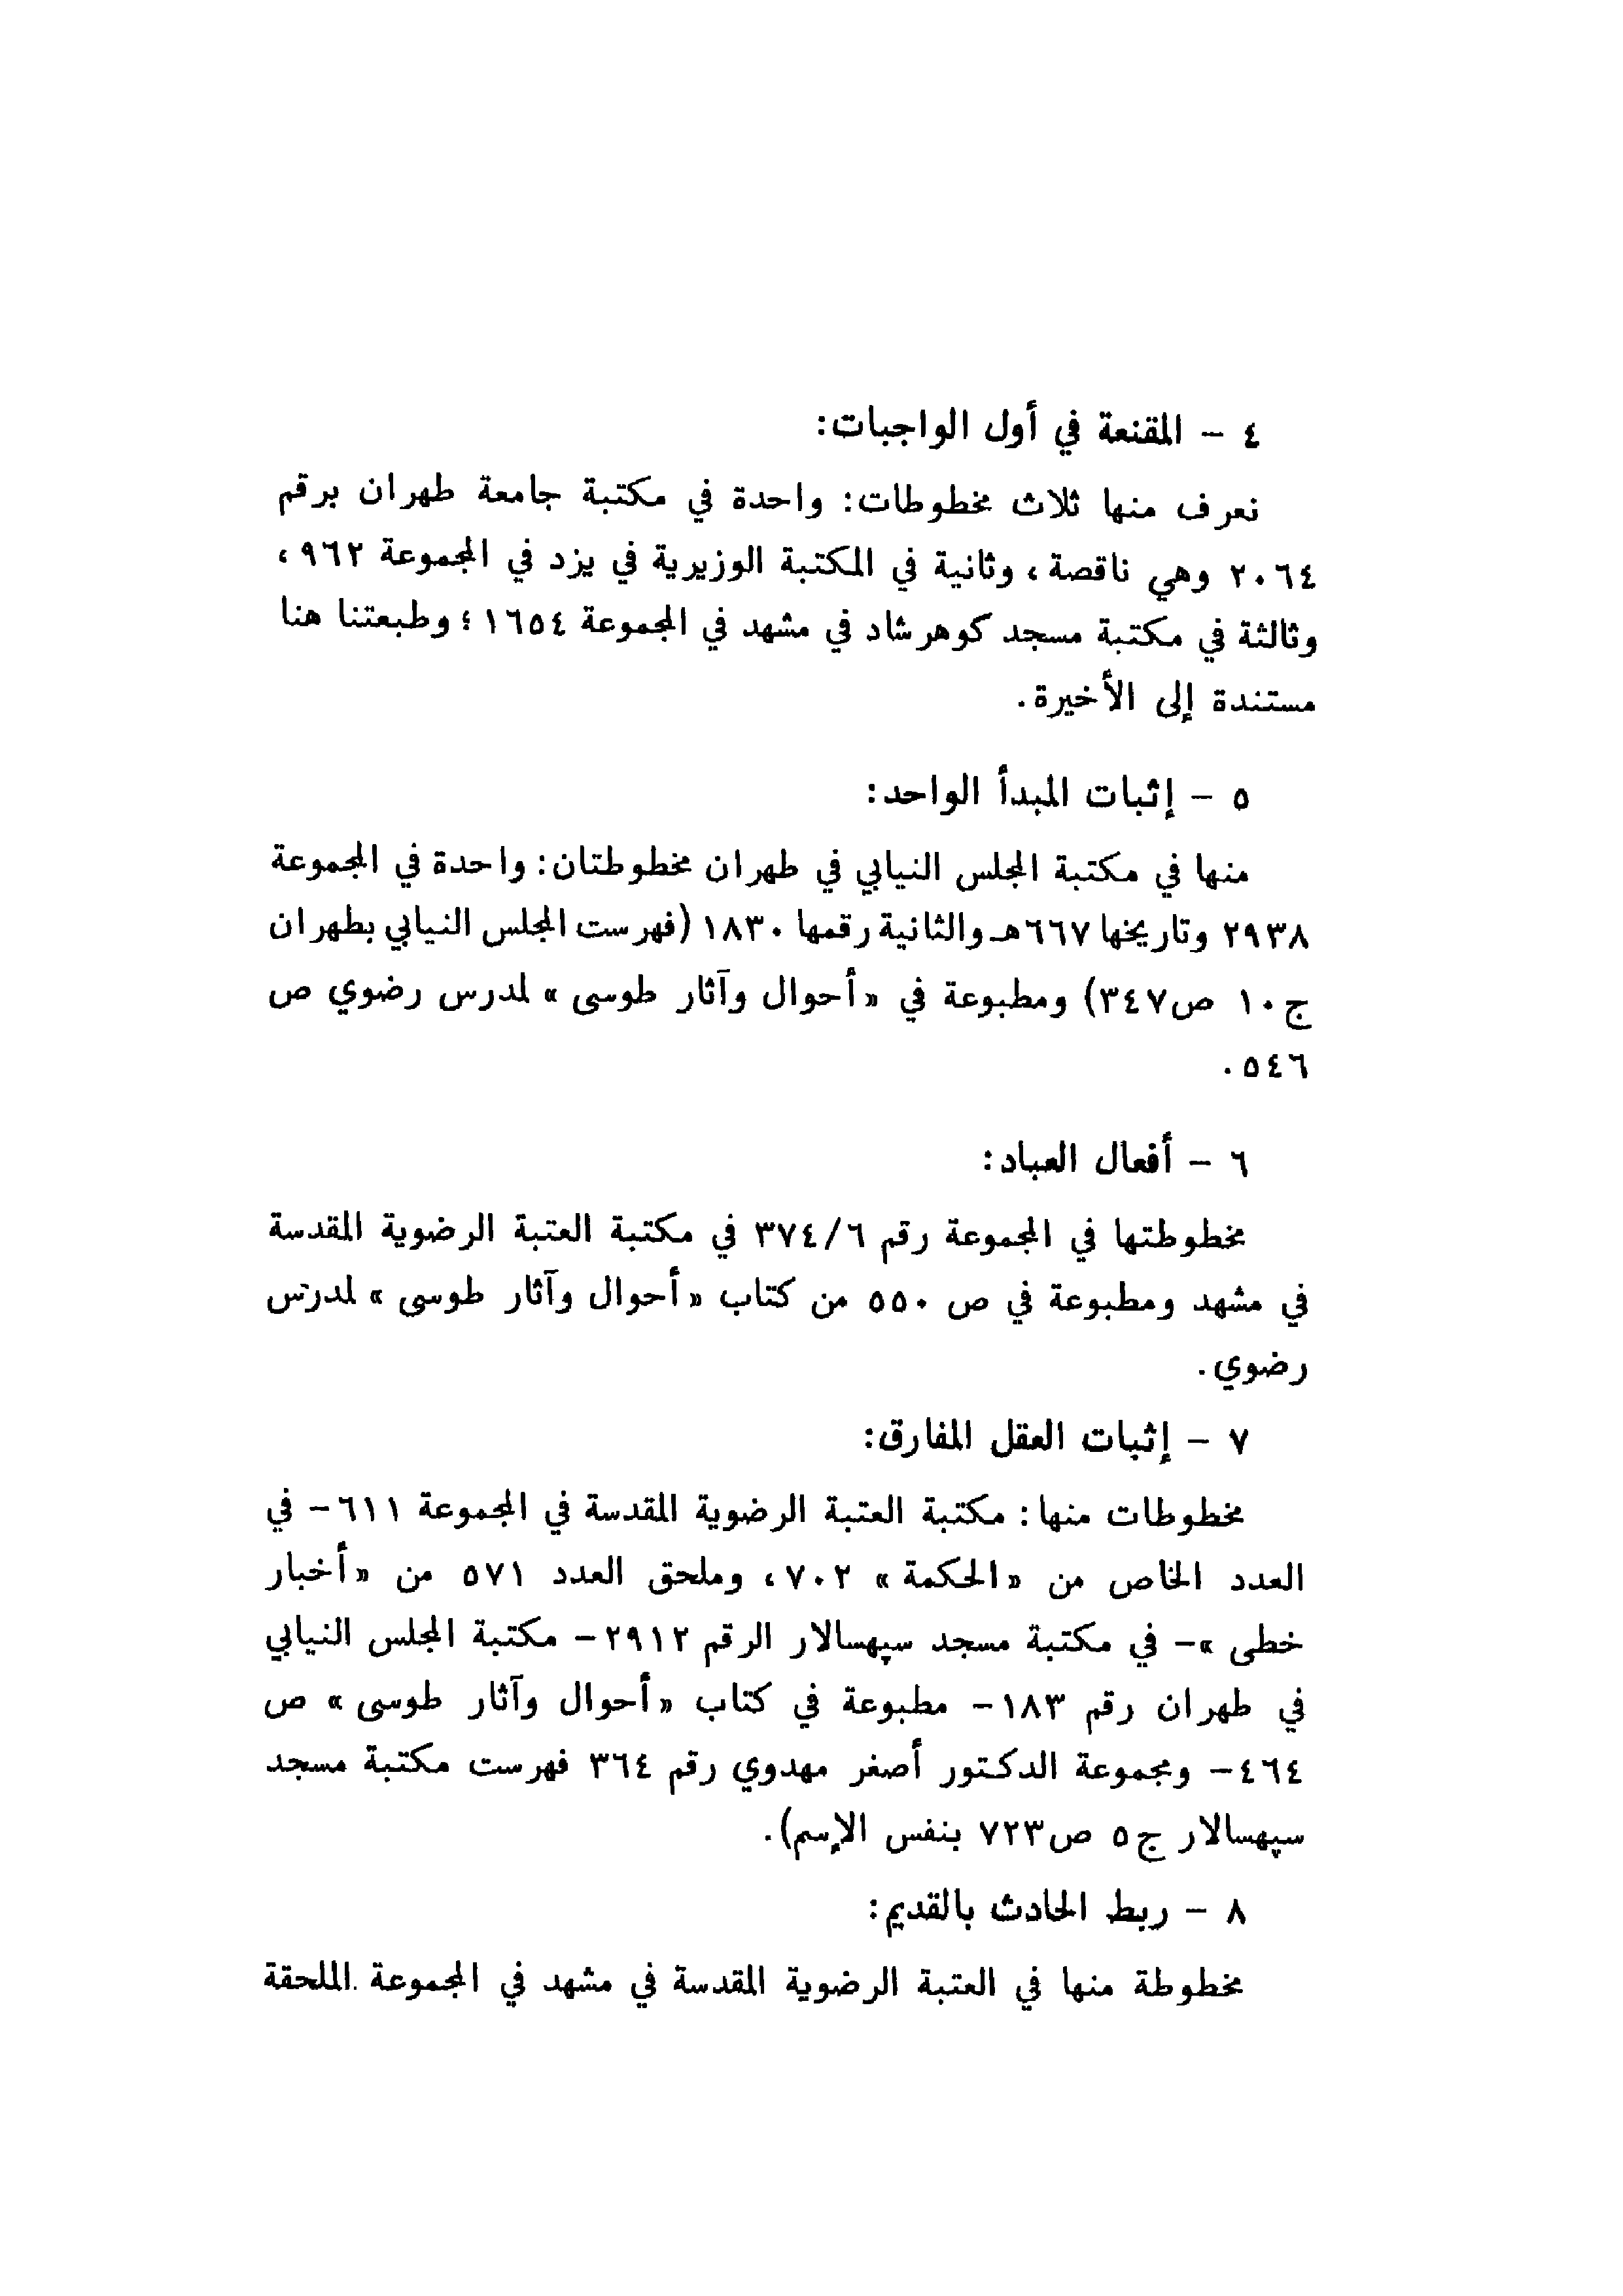 ٤ - المقنعة في أول الواجبات:
نعرف منها ثلاث مخطوطات: واحدة في مكتبة جامعة طهران برقم
٢٠٦٤ وهي ناقصة، وثانية في المكتبة الوزيرية في يزد في المجموعة ٩٦٢،
وثالثة في مكتبة مسجد كوهرشاد في مشهد في المجموعة ١٦٥٤؛ وطبعتنا هنا
مستندة إلى الأخيرة.
٥ - إثبات المبدأ الواحد:
منها في مكتبة المجلس النيابي في طهران مخطوطتان: واحدة في المجموعة
٢٩٣٨ وتاريخها ٦٦٧هـ والثانية رقمها ١٨٣٠ (فهرست المجلس النيابي بطهران
ج١٠ ص٣٤٧) ومطبوعة في «أحوال وآثار طوسى» لمدرس رضوي ص
٥٤٦.
٦ - أفعال العباد:
مخطوطتها في المجموعة رقم ٣٧٤/٦ في مكتبة العتبة الرضوية المقدسة
في مشهد ومطبوعة في ص ٥٥٠ من كتاب «أحوال وآثار طوسى» لمدرس
رضوي.
٧ - إثبات العقل المفارق:
مخطوطات منها: مكتبة العتبة الرضوية المقدسة في المجموعة ٦١١- في
العدد الخاص من «الحكمة» ٧٠٢، وملحق العدد ٥٧١ من «أخبار
خطى»- في مكتبة مسجد سپهسالار الرقم ٢٩١٢- مكتبة المجلس النيابي
في طهران رقم ١٨٣- مطبوعة في كتاب «أحوال وآثار طوسى» ص
٤٦٤- ومجموعة الدكتور أصغر مهدوي رقم ٣٦٤ فهرست مكتبة مسجد
سپهسالار ج٥ ص٧٢٣ بنفس الإسم).
٨ - ربط الحادث بالقديم:
مخطوطة منها في العتبة الرضوية المقدسة في مشهد في المجموعة الملحقة